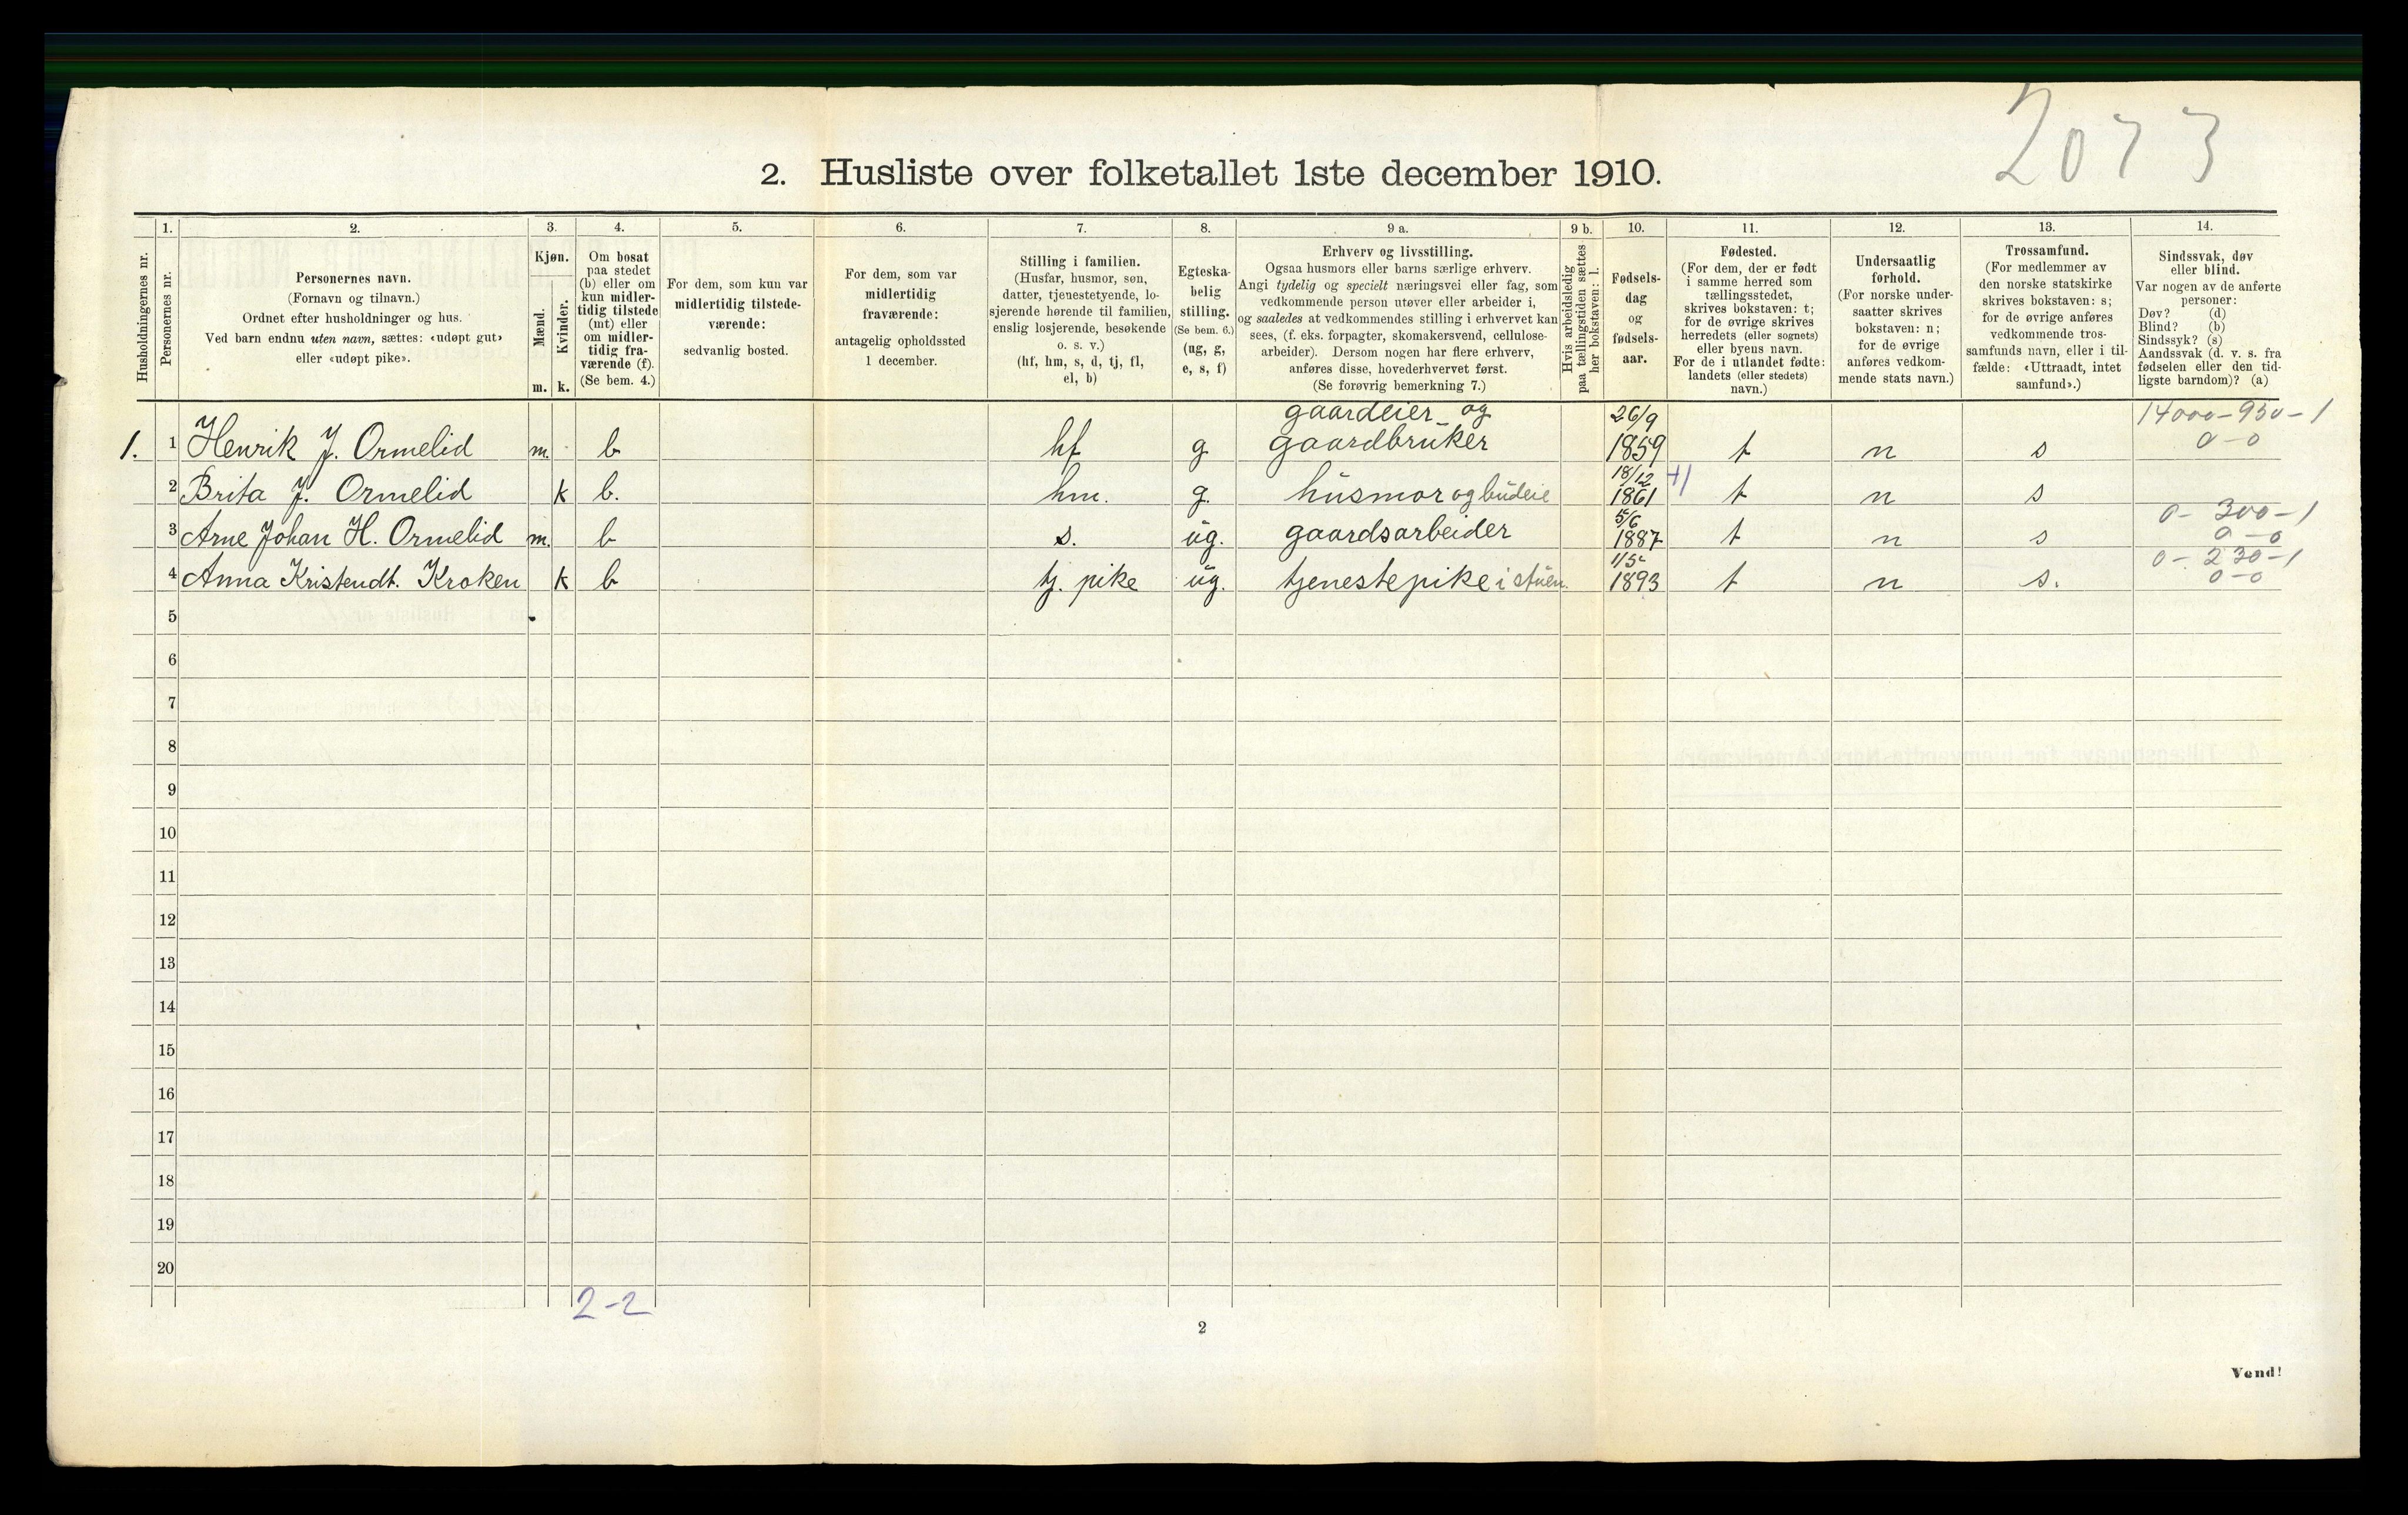 2073
2. Husliste over folketallet 1ste december 1910.
Husholdningernes nr.
1.
Personernes nr.
2.
Personernes navn.
(Fornavn og tilnavn.)
Ordnet efter husholdninger og hus.
Ved barn endnu uten navn, sættes: «udøpt gut»
eller «udøpt pike».
3.
Kjøn.
Mænd.
Kvinder.
m. k.
4.
Om bosat
paa stedet
(b) eller om
kun midler-
tidig tilstede
(mt) eller
om midler-
tidig fra-
værende (f).
(Se bem. 4.)
5.
For dem, som kun var
midlertidig tilstede-
værende:
sedvanlig bosted.
6.
For dem, som var
midlertidig
fraværende:
antagelig opholdssted
1 december.
7.
Stilling i familien.
(Husfar, husmor, søn,
datter, tjenestetyende, lo-
sjerende hørende til familien,
enslig losjerende, besøkende
o. s. v.)
(hf, hm, s, d, tj, fl,
el, b)
8.
Egteska-
belig
stilling.
(Se bem. 6.)
(ug, g,
e, s, f)
9 a.
Erhverv og livsstilling.
Ogsaa husmors eller barns særlige erhverv.
Angi tydelig og specielt næringsvei eller fag, som
vedkommende person utøver eller arbeider i,
og saaledes at vedkommendes stilling i erhvervet kan
sees, (f. eks. forpagter, skomakersvend, cellulose-
arbeider). Dersom nogen har flere erhverv,
anføres disse, hovederhvervet først.
(Se forøvrig bemerkning 7.)
9 b.
Hvis arbeidsledig
paa tællingstiden sættes
her bokstaven: l.
10.
Fødsels-
dag
og
fødsels-
aar.
11.
Fødested.
(For dem, der er født
i samme herred som
tællingsstedet,
skrives bokstaven: t;
for de øvrige skrives
herredets (eller sognets)
eller byens navn.
For de i utlandet fødte:
landets (eller stedets)
navn.)
12.
Undersaatlig
forhold.
(For norske under-
saatter skrives
bokstaven: n;
for de øvrige
anføres vedkom-
mende stats navn.)
13.
Trossamfund.
(For medlemmer av
den norske statskirke
skrives bokstaven: s;
for de øvrige anføres
vedkommende tros-
samfunds navn, eller i til-
fælde: «Uttraadt, intet
samfund».)
14.
Sindssvak, døv
eller blind.
Var nogen av de anførte
personer:
Døv? (d)
Blind? (b)
Sindssyk? (s)
Aandssvak (d. v. s. fra
fødselen eller den tid-
ligste barndom)? (a)
gaardeier og 26/9 14000-950-1
1. 1 Henrik J. Ormelid m. b hf g gaardbruker 1859 t n s 0-0
18/12
2 Brita J. Ormelid k b. hm. g. husmor og budeie 1861 t n s
5/6 0- 300-1
3 Arne Johan H. Ormelid m. b s. ug. gaardsarbeider 1887 t n s 0-0
1/5 0- 230-1
4 Anna Kristendt. Kroken k b tj. pike ug. tjenestepike i stuen. 1893 t n s. 0-0
5
6
7
8
9
10
11
12
13
14
15
16
17
18
19
20
2-2
2
Vend!